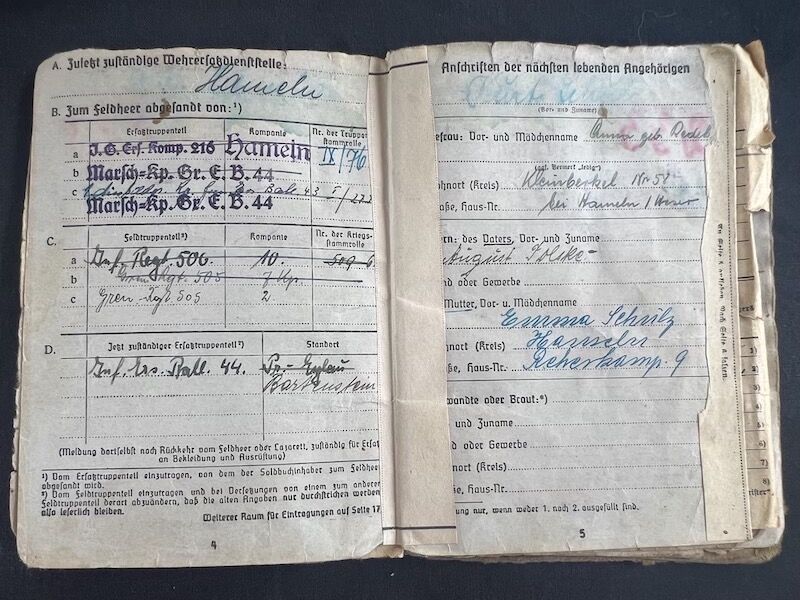 A. Zuletzt zuständige Wehrersatzdienststelle:
Hameln
B. Zum Feldheer abgesandt von:¹)
Ersatztruppenteil Kompanie Nr. der Truppenstammrolle
a J.G. Ers. Komp. 216 Hameln IX/76
b Marsch-Kp. Gr. E. B. 44
c
Marsch-Kp. Gr. E. B. 44
C. Feldtruppenteil²) Kompanie Nr. der Kriegsstammrolle
a Inf. Regt. 506 10. 509
b Gren. Rgt. 505 7 Kp.
c Gren-Rgt 505 2
D. Jetzt zuständiger Ersatztruppenteil²) Standort
Inf. Ers. Batl. 44. Pr.-Eylau
Bartenstein
(Meldung dortselbst nach Rückkehr vom Feldheer oder Lazarett, zuständig für Ersatz
an Bekleidung und Ausrüstung)
¹) Vom Ersatztruppenteil einzutragen, von dem der Soldbuchinhaber zum Feldheer
abgesandt wird.
²) Vom Feldtruppenteil einzutragen und bei Versetzungen von einem zum anderen
Feldtruppenteil derart abzuändern, daß die alten Angaben nur durchstrichen werden,
also leserlich bleiben.
Weiterer Raum für Eintragungen auf Seite 17
4
Anschriften der nächsten lebenden Angehörigen
(Vor- und Zuname)
efrau: Vor- und Mädchenname Anna geb.
(ggf. Vermerk „ledig“)
hnort (Kreis) Kleinberkel Nr 57
aße, Haus-Nr. bei Hameln / Weser
ern: des Vaters, Vor- und Zuname
August
nd oder Gewerbe
Mutter, Vor- u. Mädchenname
Emma Schulz
ort (Kreis) Hameln
aße, Haus-Nr. 9
wandte oder Braut:*)
und Zuname
d oder Gewerbe
nort (Kreis)
ße, Haus-Nr.
ung nur, wenn weder 1. noch 2. ausgefüllt sind.
5